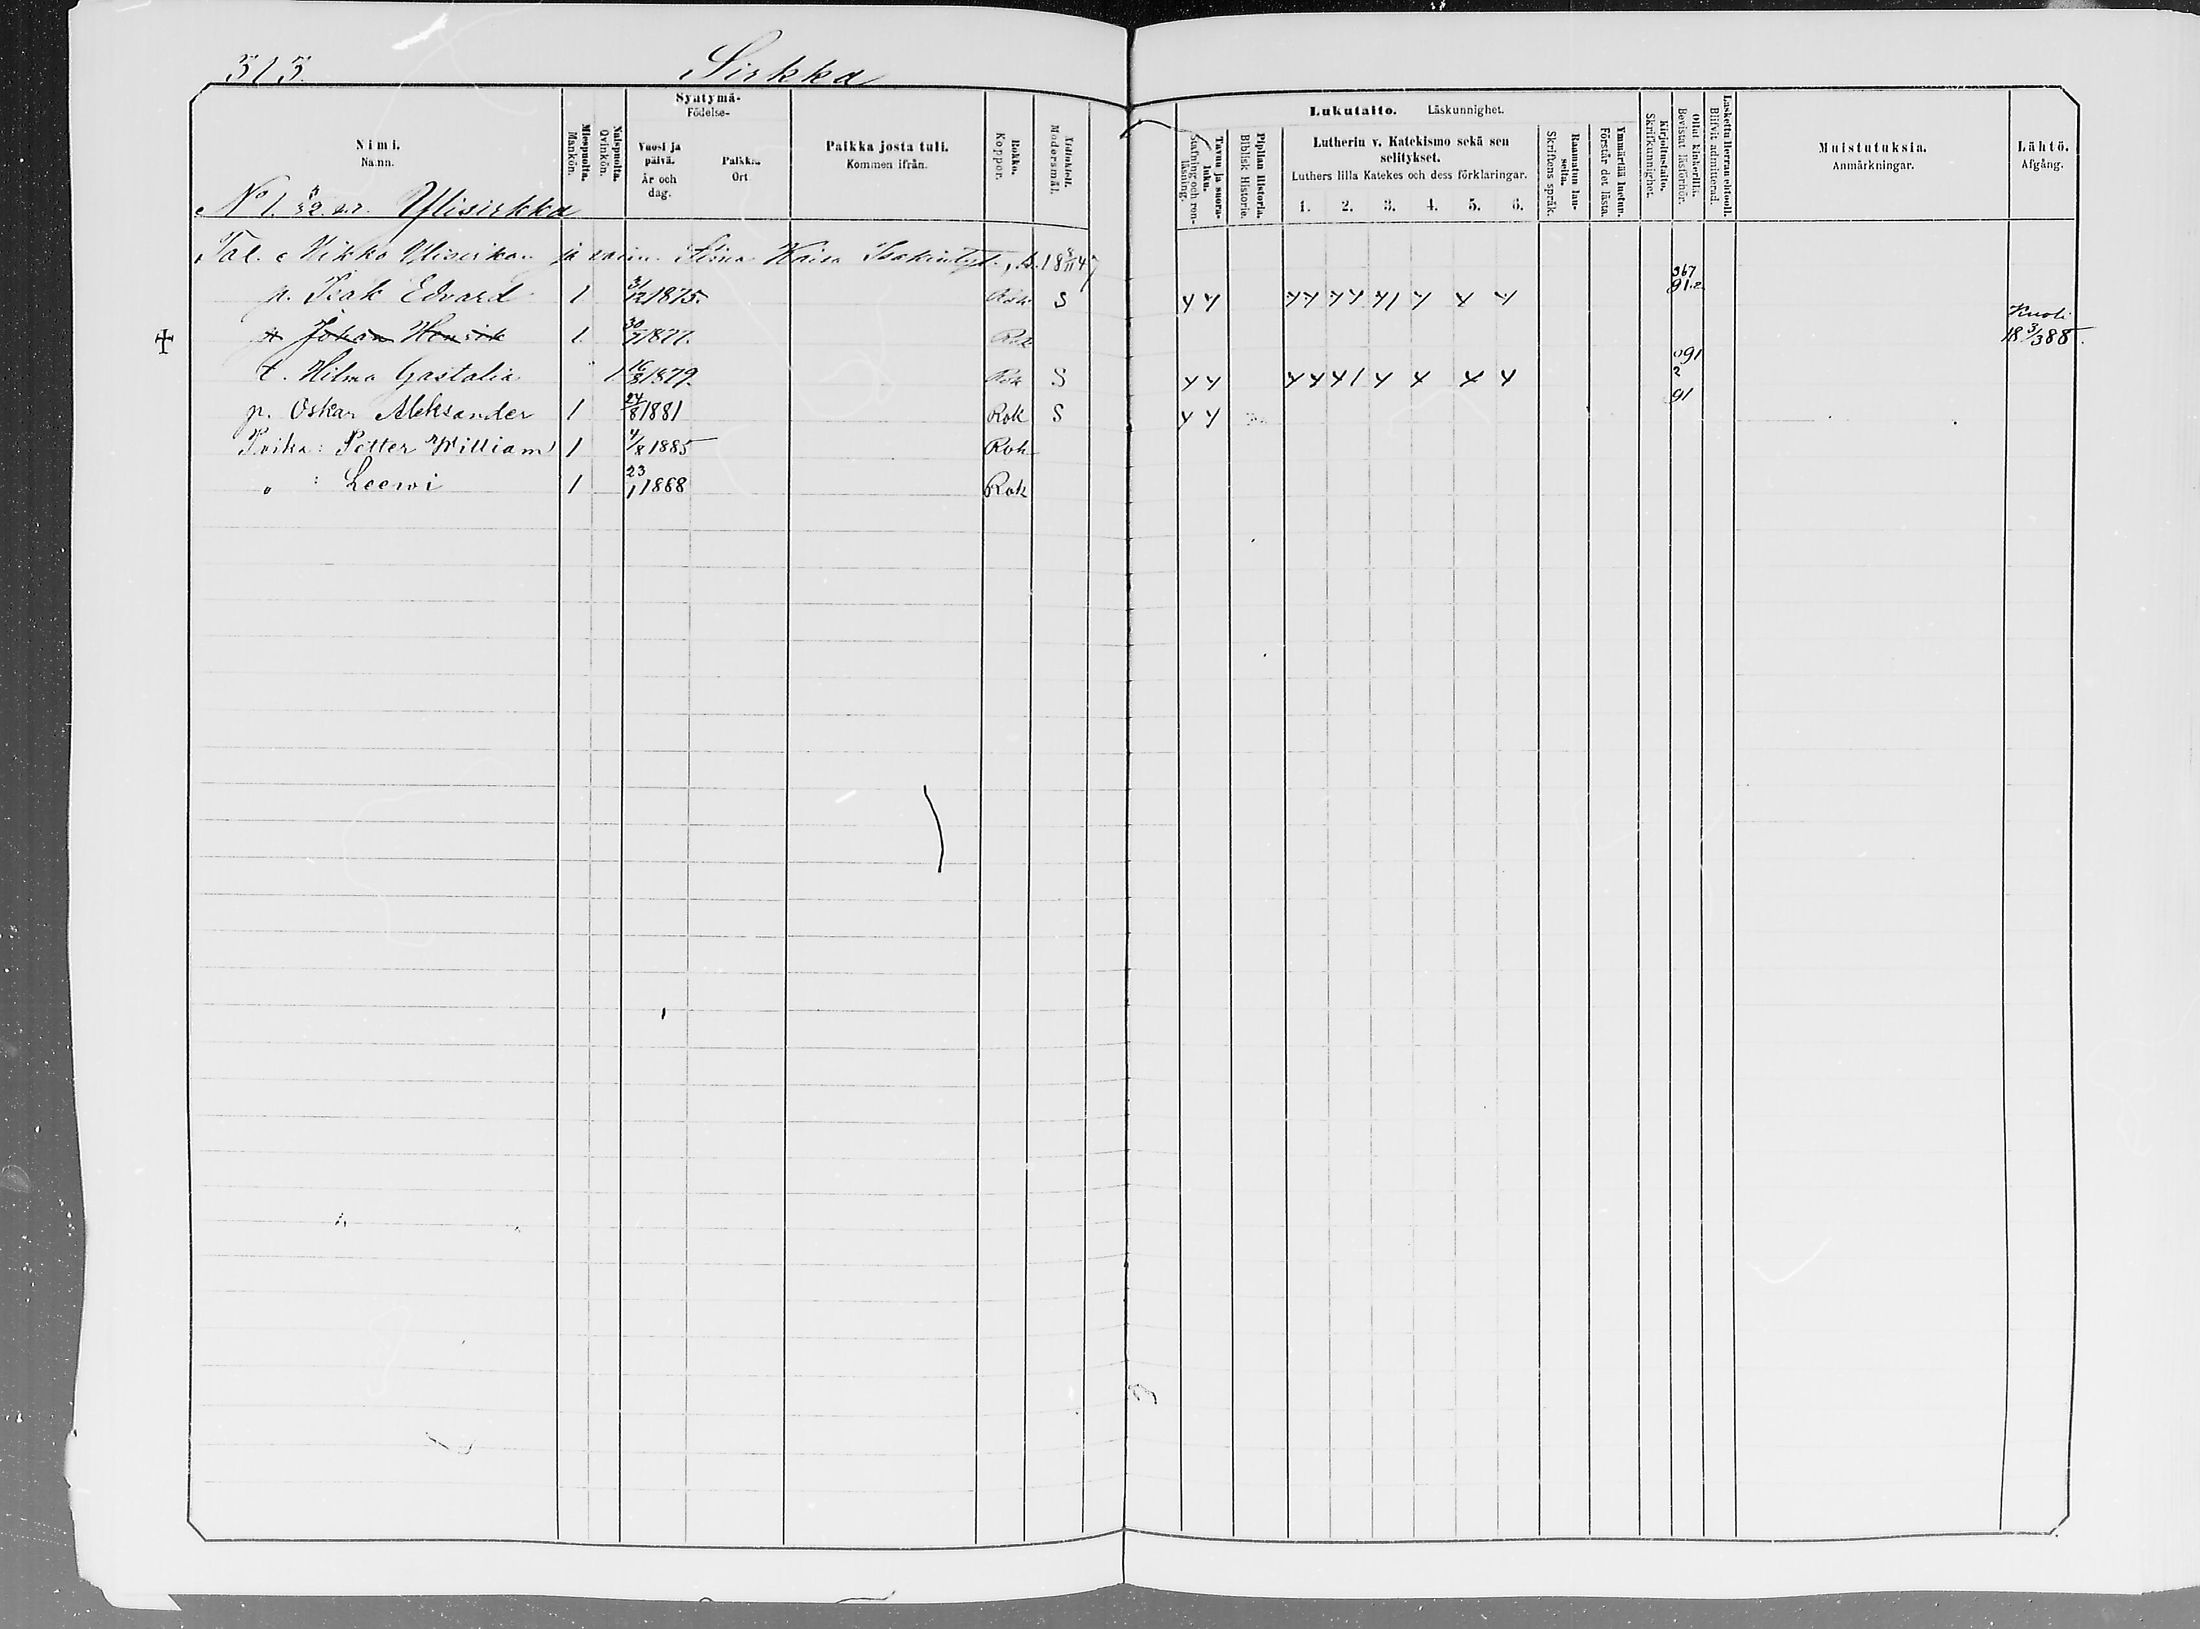 515.
Sirkka
Nimi.
Namn.
Miespuolta.
Mankön.
Naispuolta.
Qvinkön.
Syntymä-
Födelse-
Vuosi ja päivä.
År och dag.
Paikka.
Ort
Paikka josta tuli.
Kommen ifrån.
Rokko.
Koppor.
Äidinkieli.
Modersmål.
Lukutaito. Läskunnighet.
Tavuu ja suora-luku.
Stafning och ren-läsning.
Piplian Historia.
Biblisk Historie.
Lutherin v. Katekismo sekä sen
selitykset.
Luthers lilla Katekes och dess förklaringar.
1. 2. 3. 4. 5. 6.
Raamatun lau-seita.
Skriftens språk.
Ymmärtää luetun.
Förstår det lästa.
Kirjoitustaito.
Skrifkunnighet.
Ollut kinkerillä.
Bevistat läsförhör.
Laskettu Herran ehtooll.
Blifvit admitterad.
Muistutuksia.
Anmärkningar.
Lähtö.
Afgång.
No 1. Ylisirkka
Tal. Mikko Ylisirkan ja vaim. Stina Kaisa
p. Isak Edvard 1 31/12 1875. Rok S 367 91.2
p. Johan Henrik 1 30/7 1877. Rok Kuoli 18 3/3 88
t. Hilma Gastalia 1 16/3 1879. Rok S 91 2
p. Oskar Aleksander 1 24/8 1881 Rok S 91
Poika: Petter William 1 4/8 1885 Rok
" : Leewi 1 23/1 1888 Rok